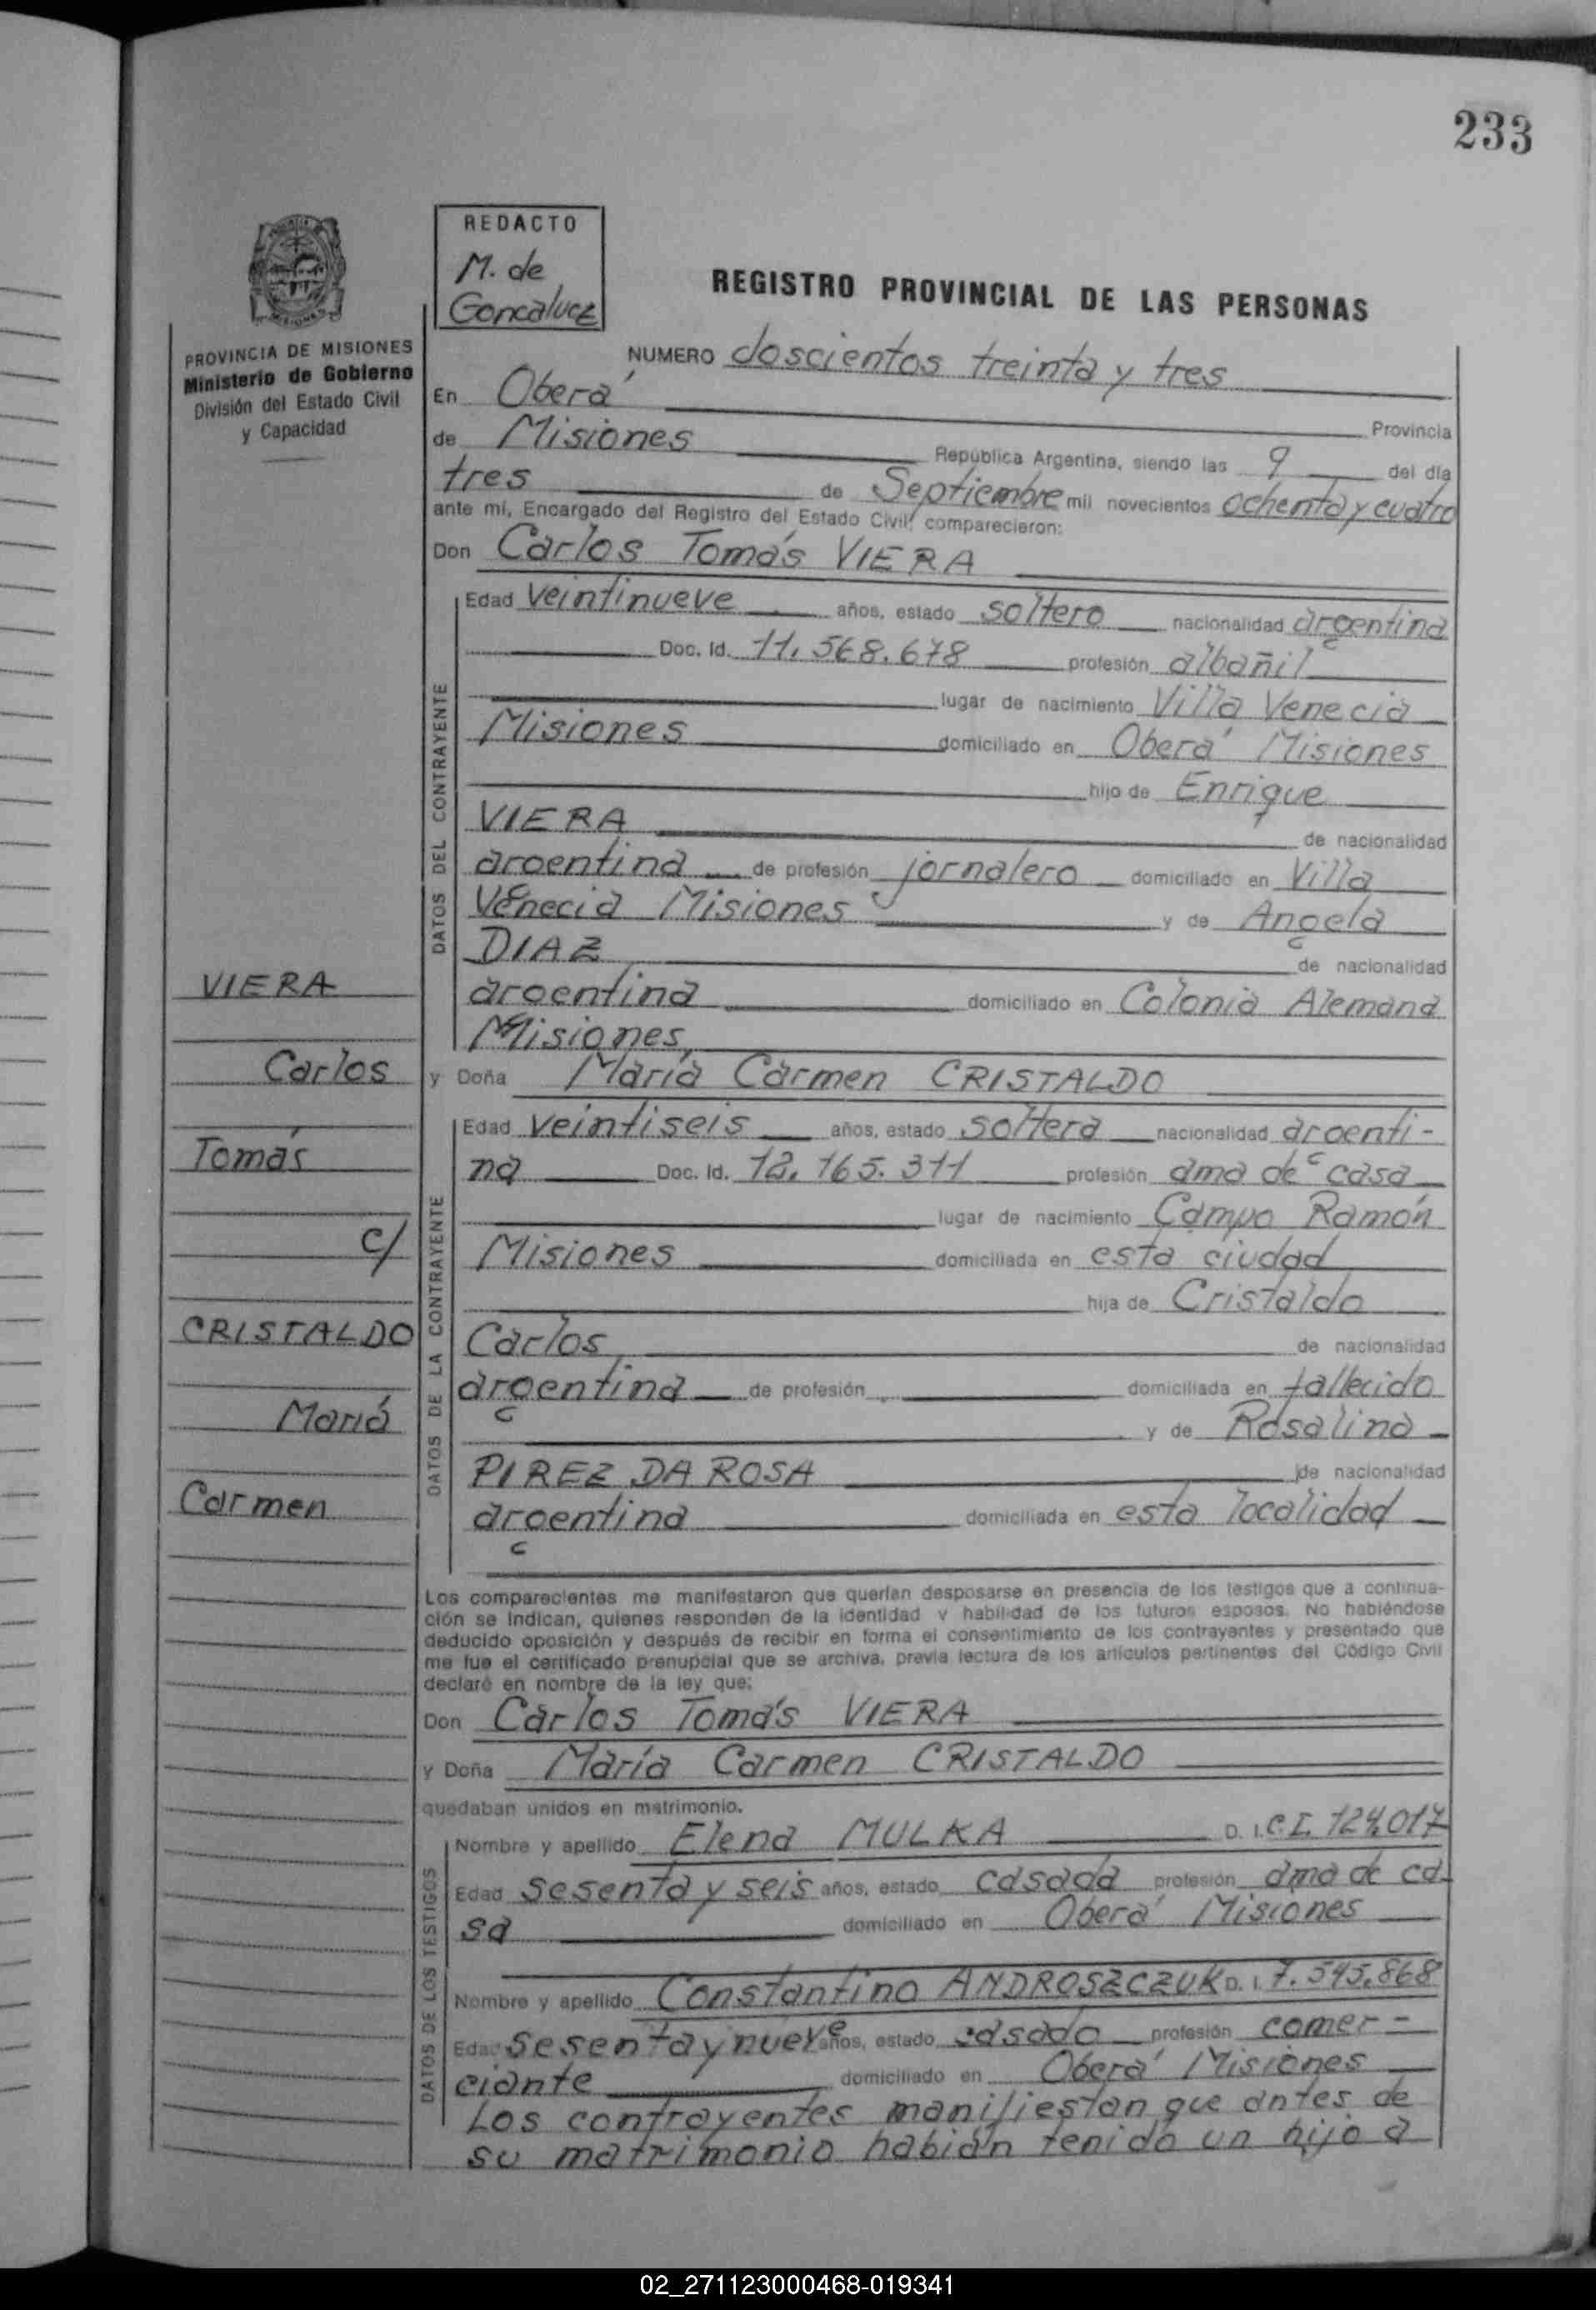 233
REDACTO
M. de
Goncaluez
REGISTRO PROVINCIAL DE LAS PERSONAS
PROVINCIA DE MISIONES
Ministerio de Gobierno
División del Estado Civil
y Capacidad
NUMERO doscientos treinta y tres
En Oberá Provincia
de Misiones República Argentina, siendo las 9 del día
tres de Septiembre mil novecientos ochenta y cuatro
ante mí, Encargado del Registro del Estado Civil, comparecieron:
Don Carlos Tomás VIERA
DATOS DEL CONTRAYENTE
Edad veintinueve años, estado soltero nacionalidad argentina
Doc. Id. 11.568.678 profesión albañil
lugar de nacimiento Villa Venecia
Misiones domiciliado en Oberá Misiones
hijo de Enrique
VIERA de nacionalidad
argentina de profesión jornalero domiciliado en Villa
Venecia Misiones y de Angela
DIAZ de nacionalidad
argentina domiciliado en Colonia Alemana
Misiones
y Doña María Carmen CRISTALDO
DATOS DE LA CONTRAYENTE
Edad veintiseis años, estado soltera nacionalidad argenti-
na Doc. Id. 12.165.311 profesión ama de casa
lugar de nacimiento Campo Ramón
Misiones domiciliada en esta ciudad
hija de Cristaldo
Carlos de nacionalidad
argentina de profesión domiciliada en fallecido
y de Rosalina
PIREZ DA ROSA de nacionalidad
argentina domiciliada en esta localidad
VIERA
Carlos
Tomás
c/
CRISTALDO
María
Carmen
Los comparecientes me manifestaron que querían desposarse en presencia de los testigos que a continua-
ción se indican, quienes responden de la identidad y habilidad de los futuros esposos. No habiéndose
deducido oposición y después de recibir en forma el consentimiento de los contrayentes y presentado que
me fue el certificado prenupcial que se archiva, previa lectura de los artículos pertinentes del Código Civil
declaré en nombre de la ley que:
Don Carlos Tomás VIERA
y Doña María Carmen CRISTALDO
quedaban unidos en matrimonio.
DATOS DE LOS TESTIGOS
Nombre y apellido Elena MULKA D. I. C.I. 124.017
Edad sesenta y seis años, estado casada profesión ama de ca-
sa domiciliado en Oberá Misiones
Nombre y apellido Constantino ANDROSZCZUK D. I. 7.545.868
Edad sesenta y nueve años, estado casado profesión comer-
ciante domiciliado en Oberá Misiones
Los contrayentes manifiestan que antes de
su matrimonio habián tenido un hijo a
02_271123000468-019341